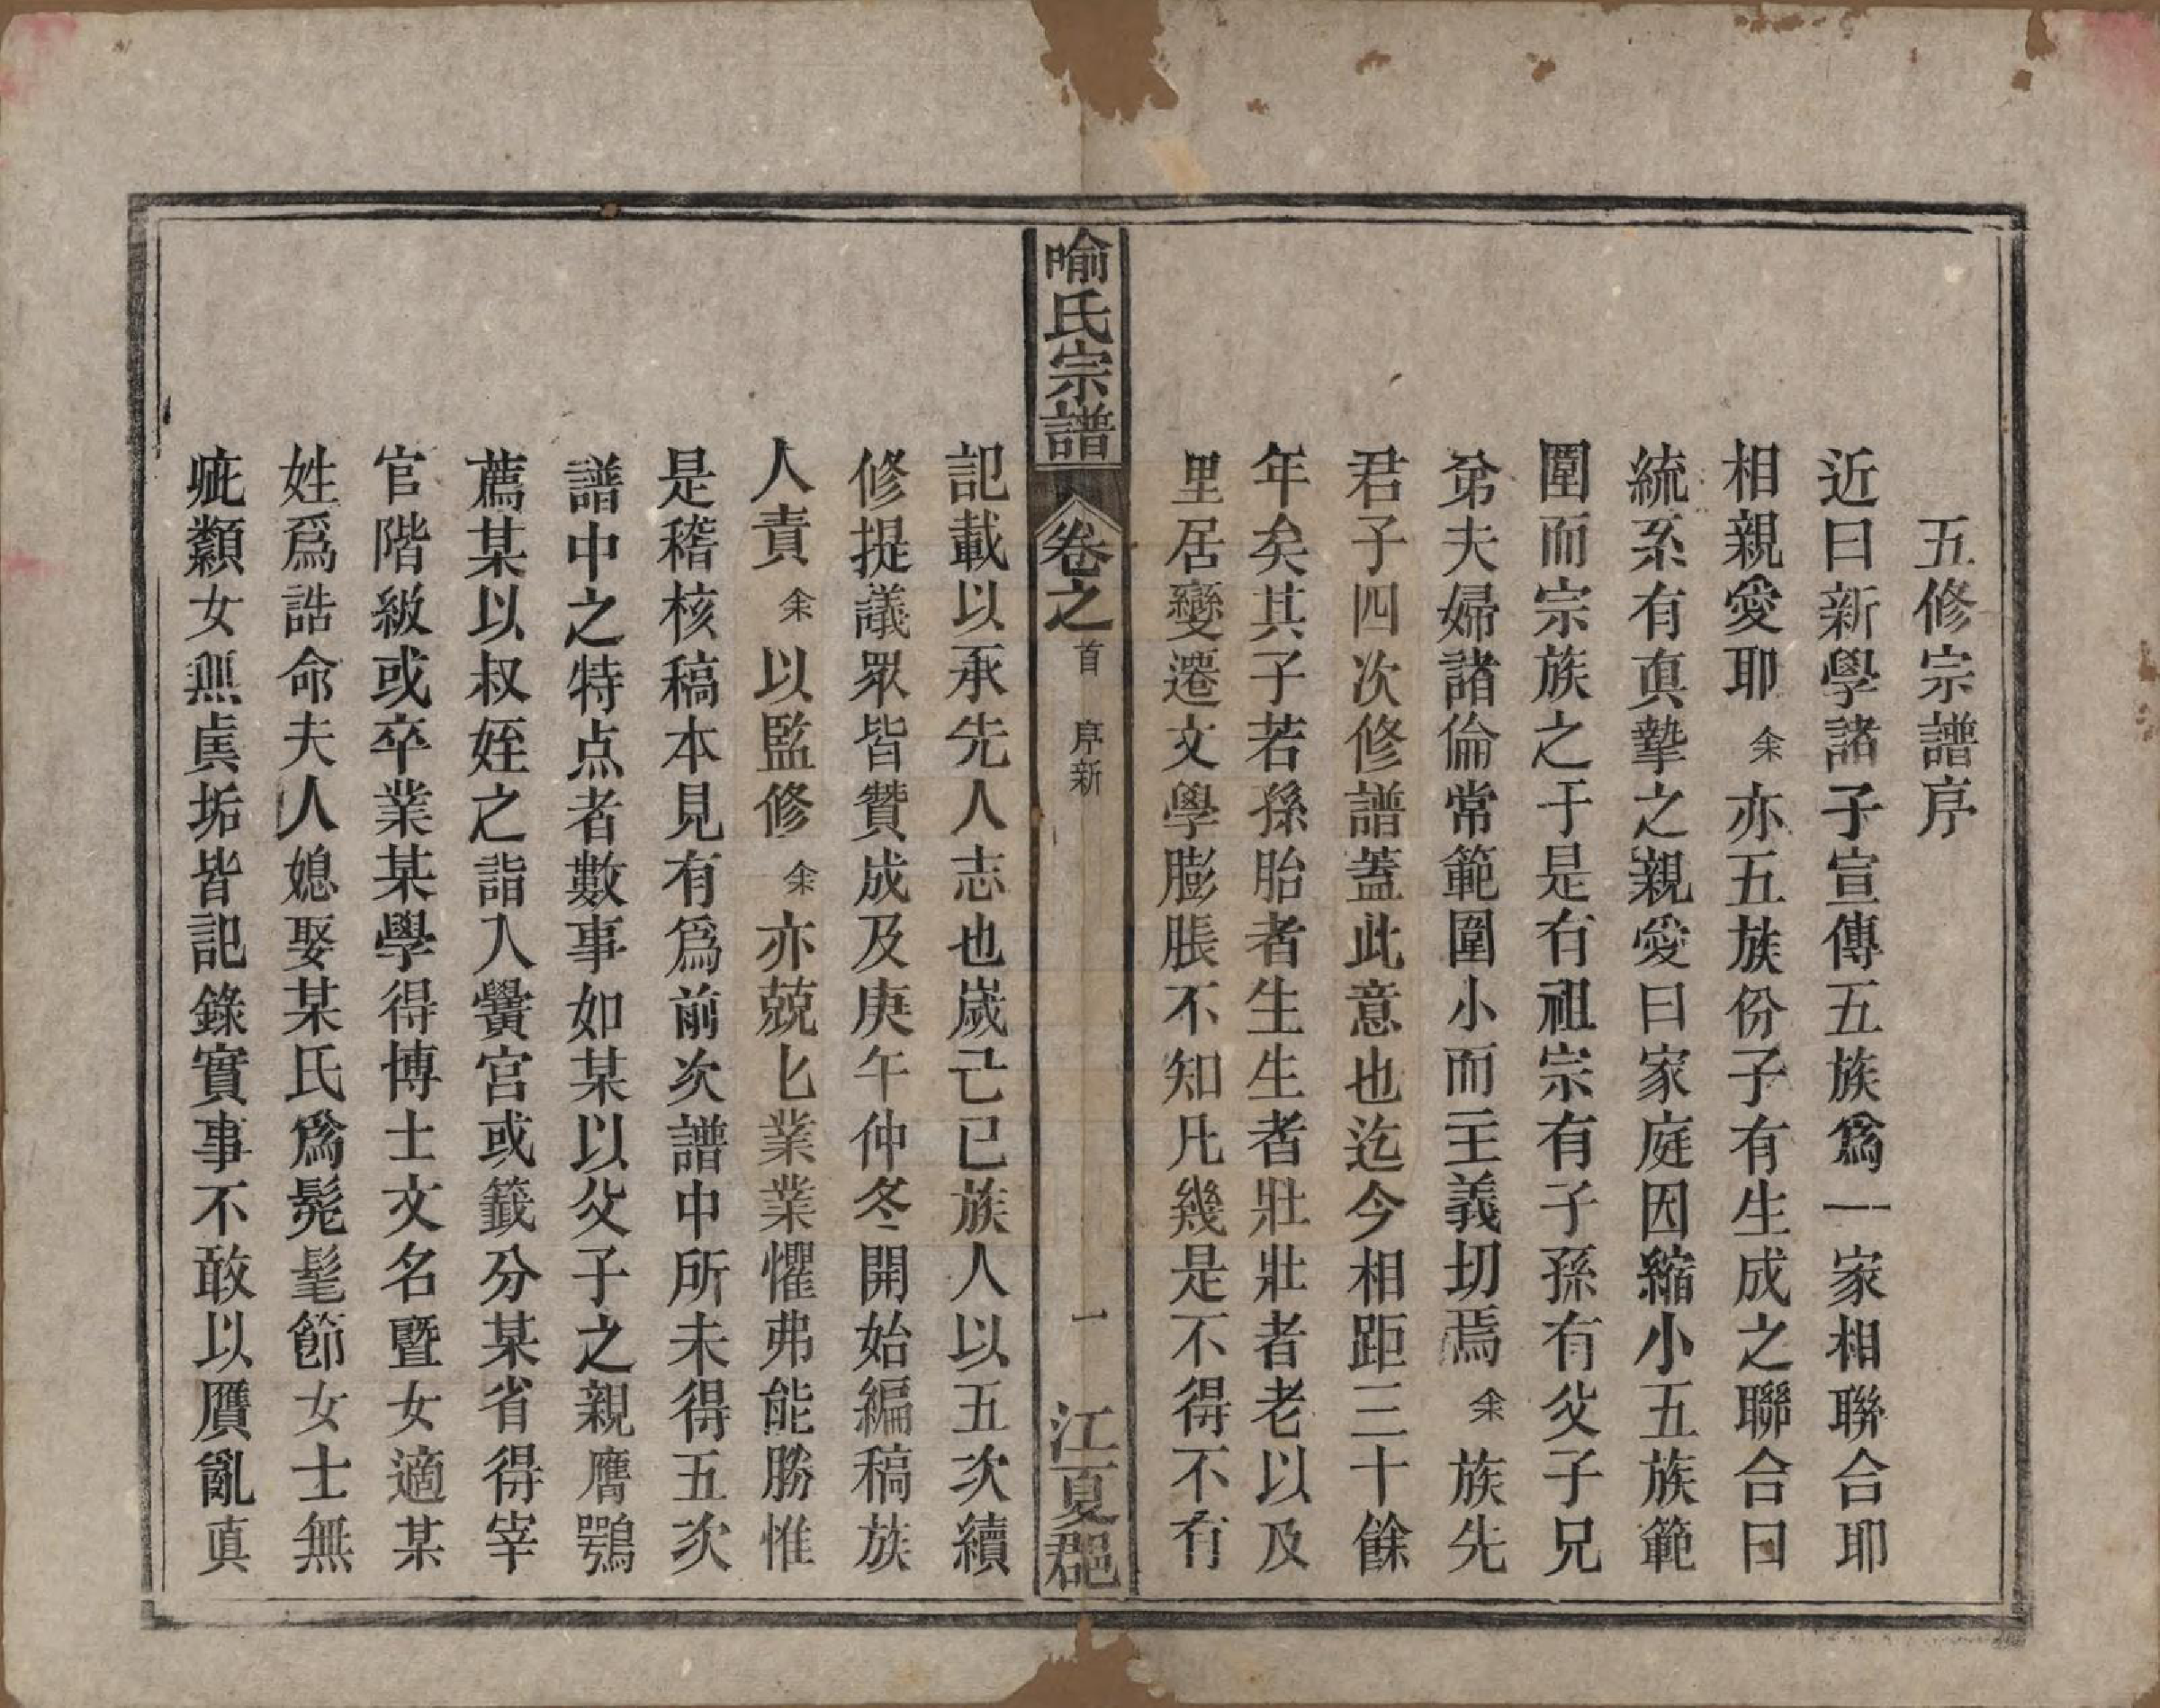 五修宗譜序
近日新學諸子宣傳五族爲一家相聯合耶
相親愛耶余亦五族份子有生成之聯合曰
統系有真摯之親愛曰家庭因縮小五族範
圍而宗族之于是有祖宗有子孫有父子兄
弟夫婦諸倫常範圍小而主義切焉余族先
君子四次修譜蓋此意也迄今相距三十餘
年矣其子若孫胎者生生者壯壯者老以及
里居變遷文學膨脹不知凡幾是不得不有
喻氏宗譜 卷之首 序新 一 江夏郡
記載以承先人志也歲己巳族人以五次續
修提議眾皆贊成及庚午仲冬開始編稿族
人責余以監修余亦兢匕業業懼弗能勝惟
是稽核稿本見有爲前次譜中所未得五次
譜中之特点者數事如某以父子之親膺鶚
薦某以叔姪之詣入黌宮或籤分某省得宰
官階級或卒業某學得博士文名暨女適某
姓爲誥命夫人媳娶某氏爲髡髦節女士無
疵纇女無㒵垢皆記錄實事不敢以贋亂真